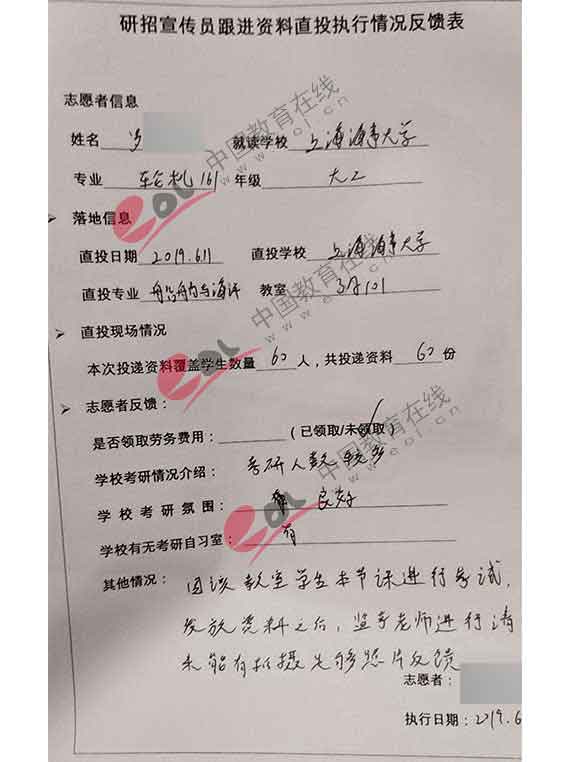 研招宣传员跟进资料直投执行情况反馈表
志愿者信息
姓名 就读学校 上海海事大学
专业 轮机161 年级 大三
落地信息
直投日期 2019.6.11 直投学校 上海海事大学
直投专业 船舶与海洋 教室 101
直投现场情况
本次投递资料覆盖学生数量 60 人，共投递资料 60 份
志愿者反馈：
是否领取劳务费用： (已领取/未领取)
学校考研情况介绍： 考研人数较多
学校考研氛围： 良好
学校有无考研自习室： 有
其他情况： 因该教室学生本节课进行考试，
发放资料之后，监考老师进行清
未能有拍摄足够照片反馈
志愿者：
执行日期：2019.6
中国教育在线
www.eol.cn
eol
中国教育在线
www.eol.cn
eol
中国教育在线
www.eol.cn
eol